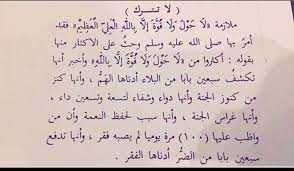 لا تترك
ملازمة «لَا حَوْلَ وَلَا قُوَّةَ إِلَّا بِاللَّهِ العَلِيِّ العَظِيْمِ» فقد
أمرَ بها صلى الله عليه وسلم وحثَّ على الاكثار منها
بقوله : أكثروا من «لَا حَوْلَ وَلَا قُوَّةَ إِلَّا بِاللَّهِ» وأخبر أنها
تكشفُ سبعين بابا من البلاء أدناها الهَمُّ ، وأنها كنز
من كنوز الجنة وأنها دواء وشفاء لتسعة وتسعين داء ،
وأنها غراس الجنة ، وأنها سبب لحفظ النعمة وأن من
واظب عليها (١٠٠) مرة يوميا لم يصبه فقر ، وأنها تدفع
سبعين بابا من الضُّر أدناها الفقر .